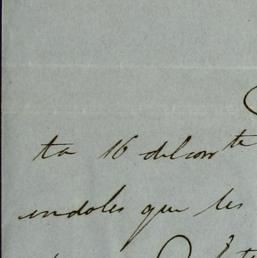 ta 16 del corrte
endoles que les